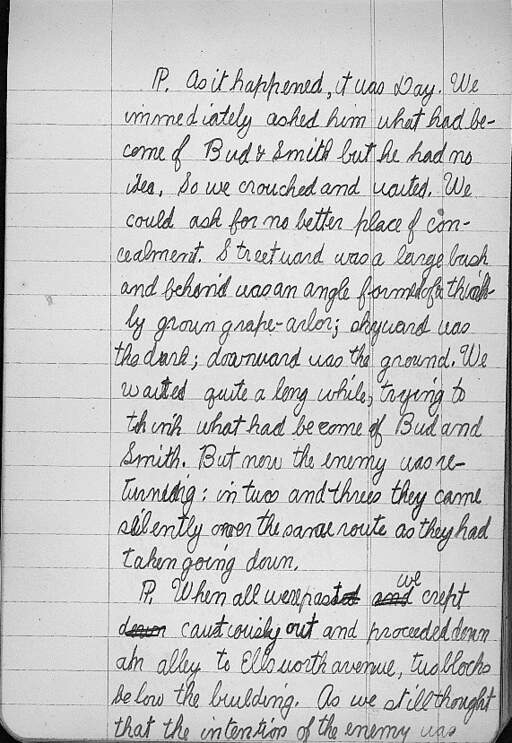 P. As it happened, it was Day. We
immediately asked him what had be-
come of Bud & Smith but he had no
idea. So we crouched and waited. We
could ask for no better place of con-
cealment. Streetward was a large bush
and behind was an angle formed of a thick-
ly grown grape-arbor; skyward was
the dark; downward was the ground. We
waited quite a long while, trying to
think what had become of Bud and
Smith. But now the enemy was re-
turning: in twos and threes they came
silently over the same route as they had
taken going down.
P. When all were past and we crept
down cautiously out and proceeded down
an alley to Ellsworth avenue, two blocks
below the building. As we still thought
that the intention of the enemy was